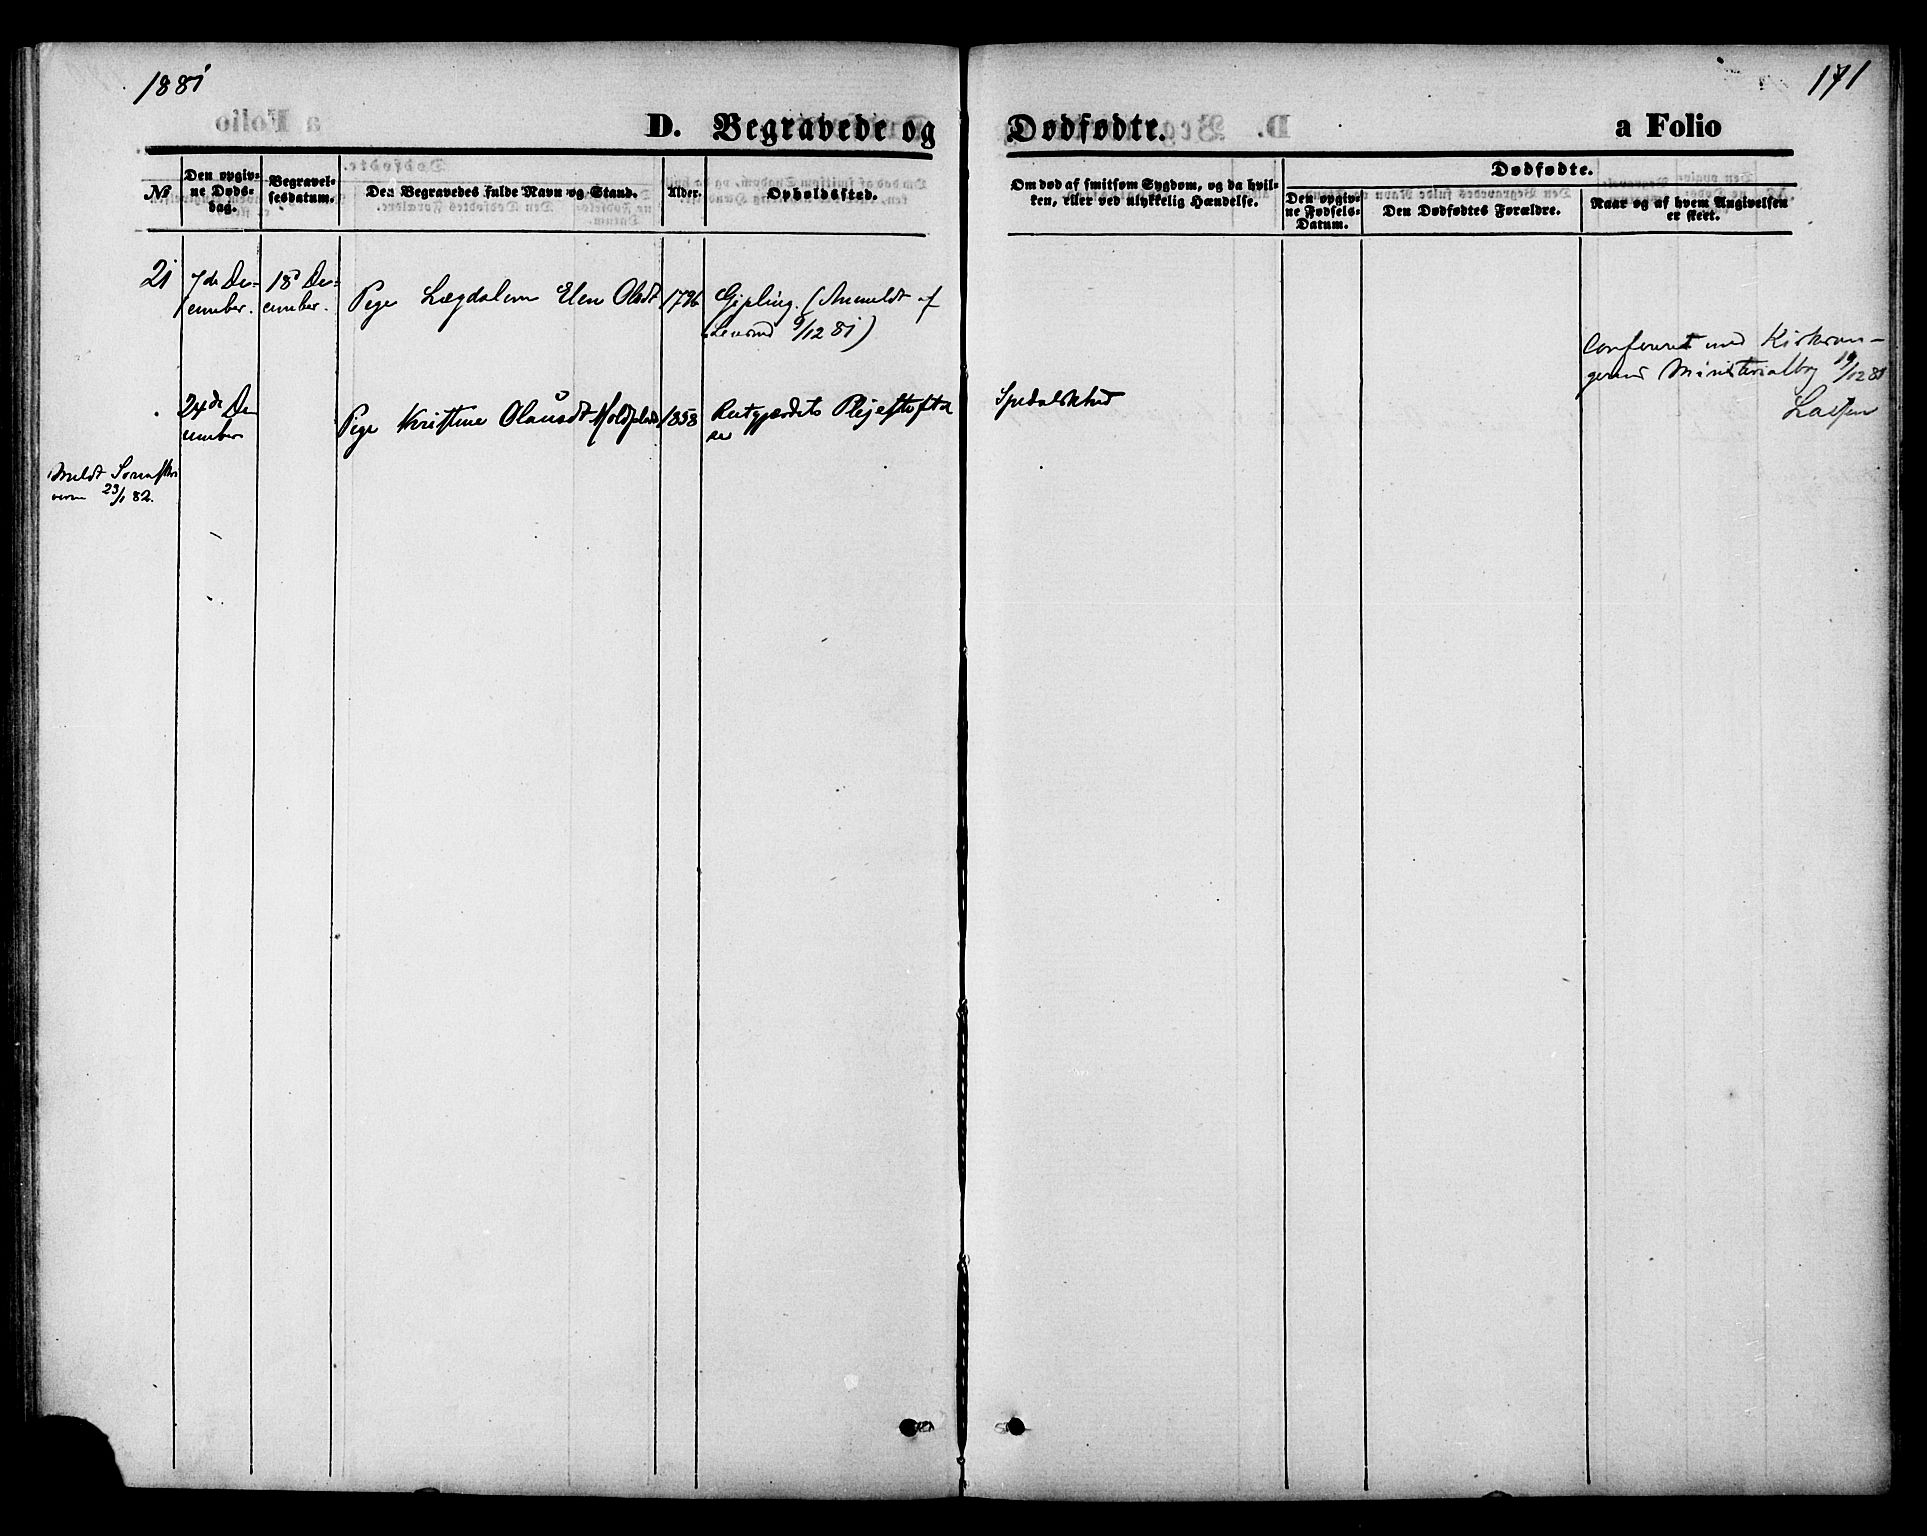 1881
171
D. Begravede og Dødfødte. a Folio
No
Den opgiv-
ne Døds-
dag.
Begravel-
sesdatum.
Den Begravedes fulde Navn og Stand.
Alder.
Opholdssted.
Om død af smitsom Sygdom, og da hvil-
ken, eller ved ulykkelig Hændelse.
Dødfødte.
Den opgiv-
ne Fødsels-
Datum.
Den Dødfødtes Forældre.
Naar og af hvem Angivelsen
er skeet.
21
7de De-
cember.
18 De-
cember.
Pige Lægdslem Elen Olsdt
1796
Gipling. (Anmeldt af
9/12 81)
Confereret med
Ministerialbog 19/12 81
24de De
cember
Pige Kristine Olausdt Moldjelsd
1858
Reitgjærdets Plejestiftel
se
Spedalskhed
Meldt
23/1 82.